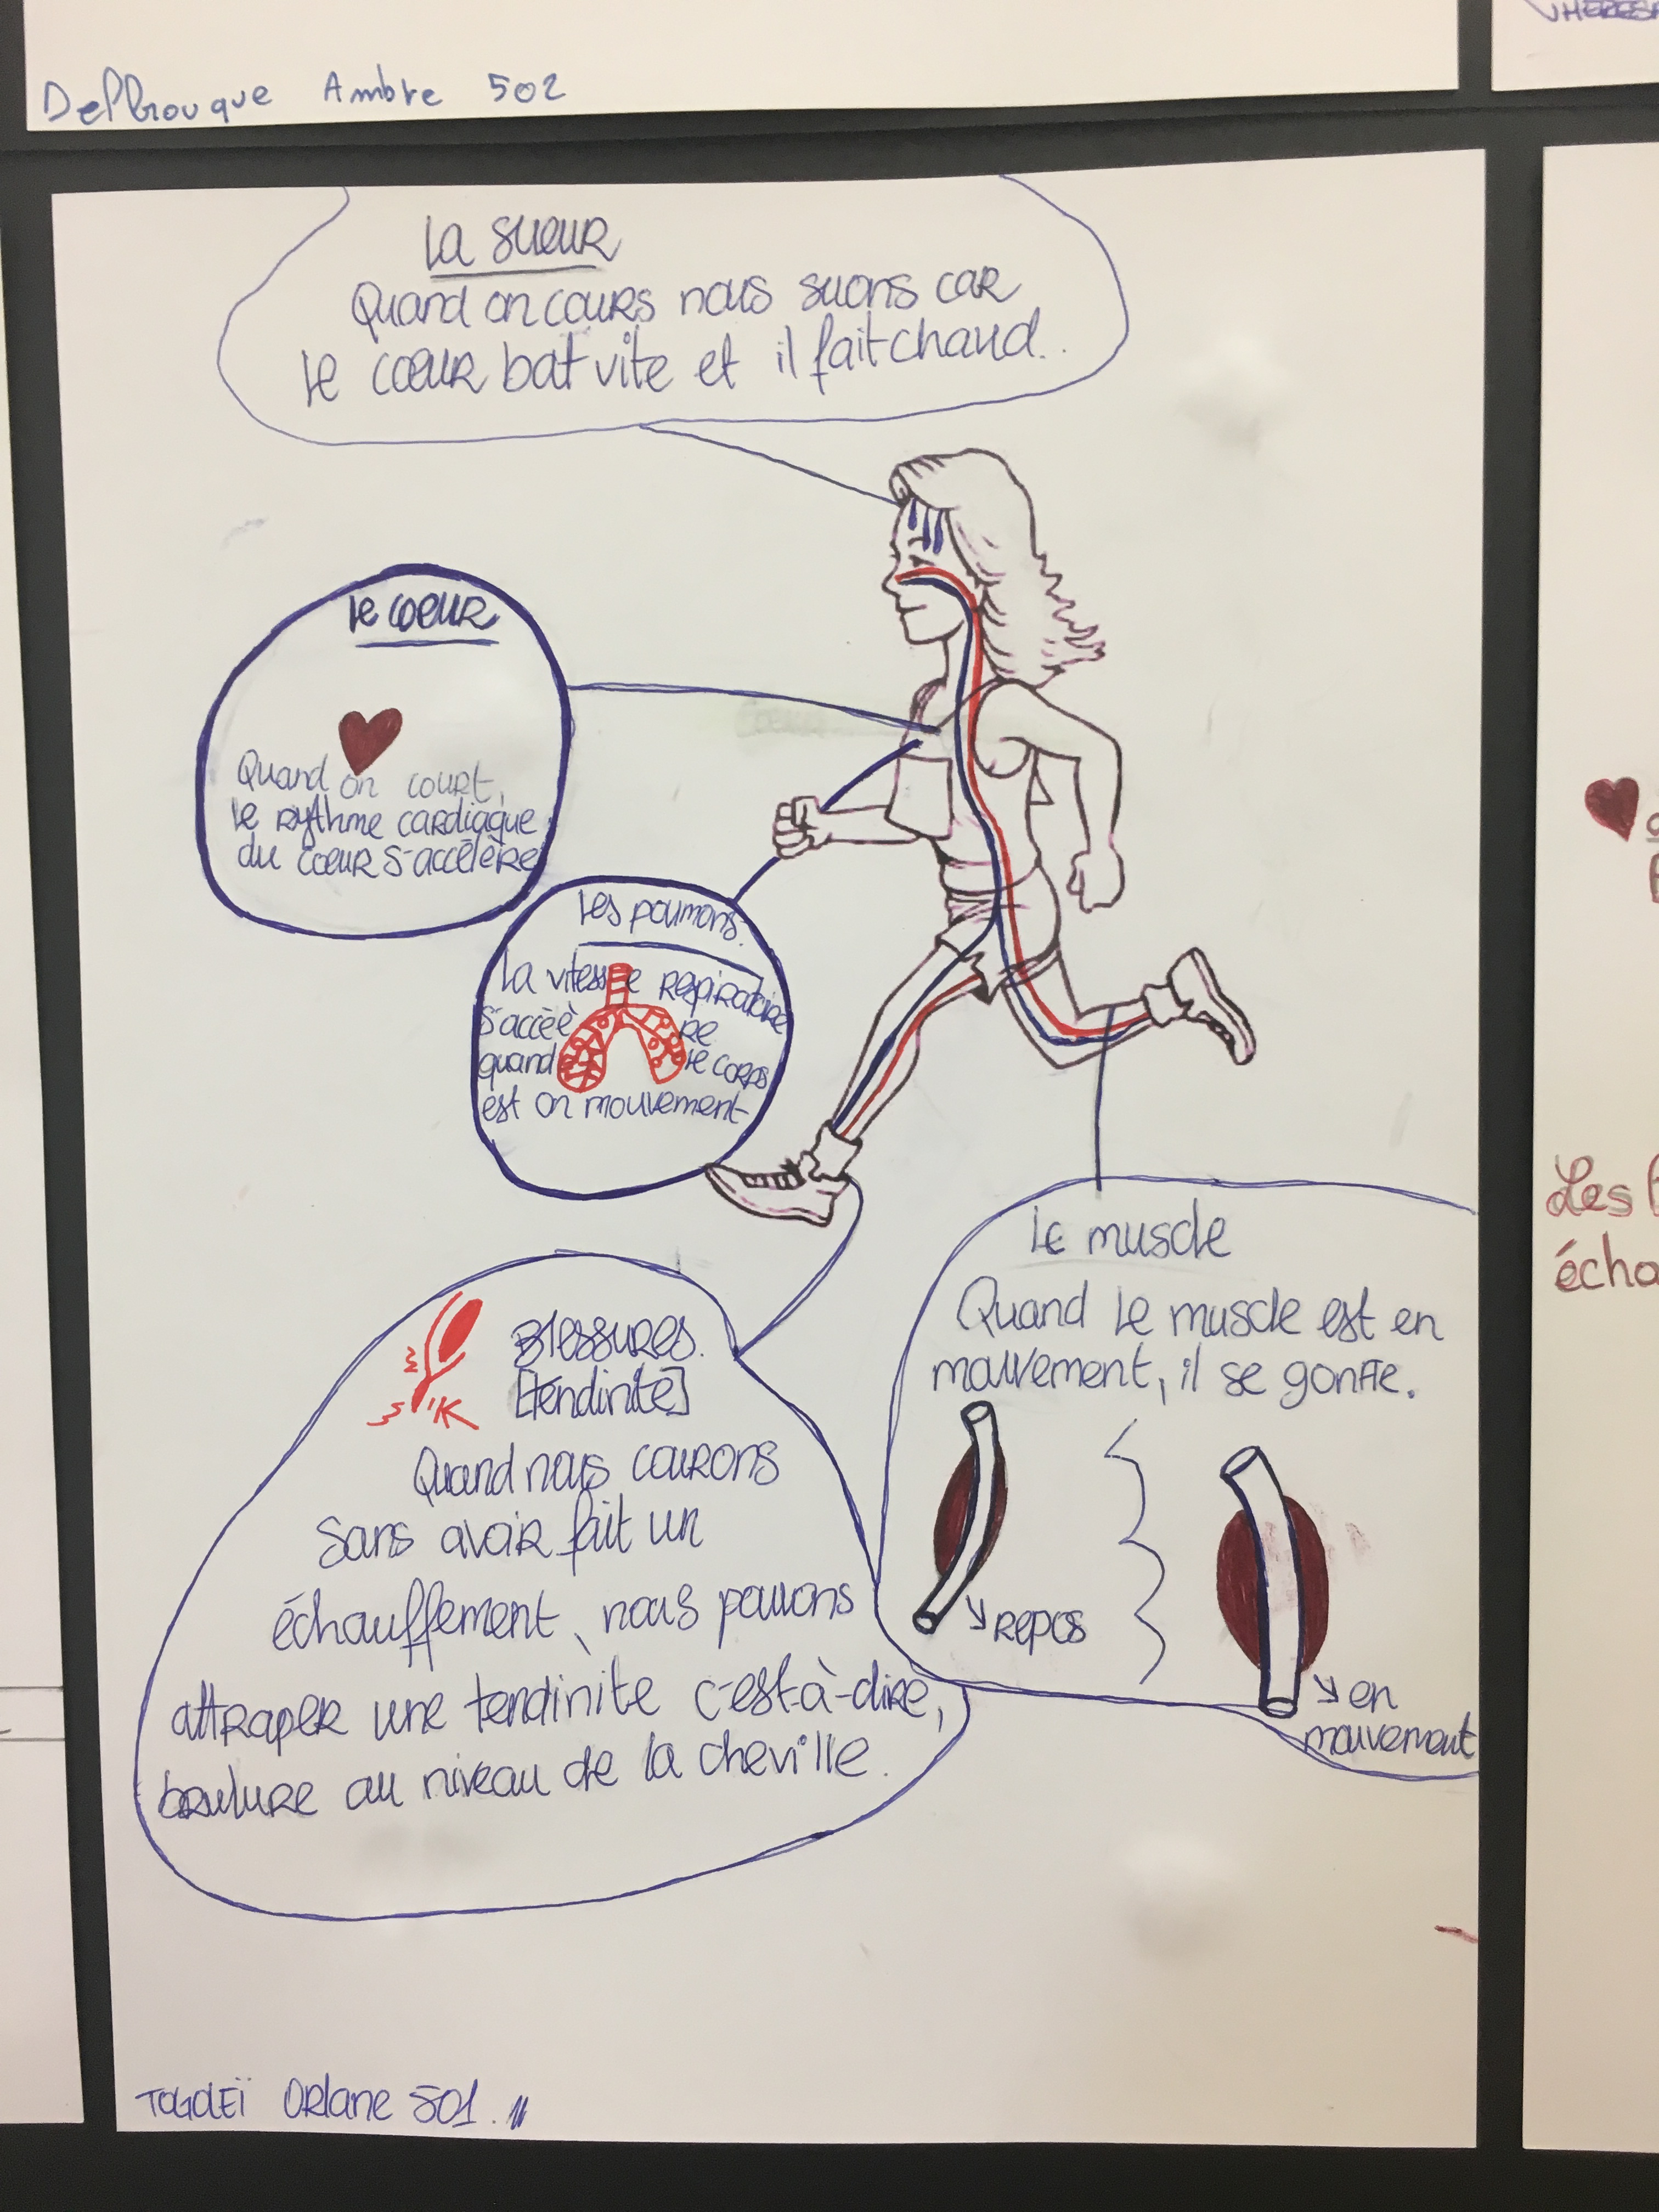 Ambre 502
La sueur
Quand on cours nous suons car
le cœur bat vite et il fait chaud..
le coeur
Quand on court,
le rythme cardiaque
du coeur s'accélère
Les poumons.
La vitesse respiratoire
s'accéè re
quand le corps
est on mouvement
Le muscle
Quand le muscle est en
mouvement, il se gonfle.
repos
en
mouvement
Blessures.
[tendinite]
Quand nous courons
sans avoir fait un
échauffement, nous pouvons
attraper une tendinite c'est-à-dire,
brulure au niveau de la cheville.
Orlane 501.
Les
écha